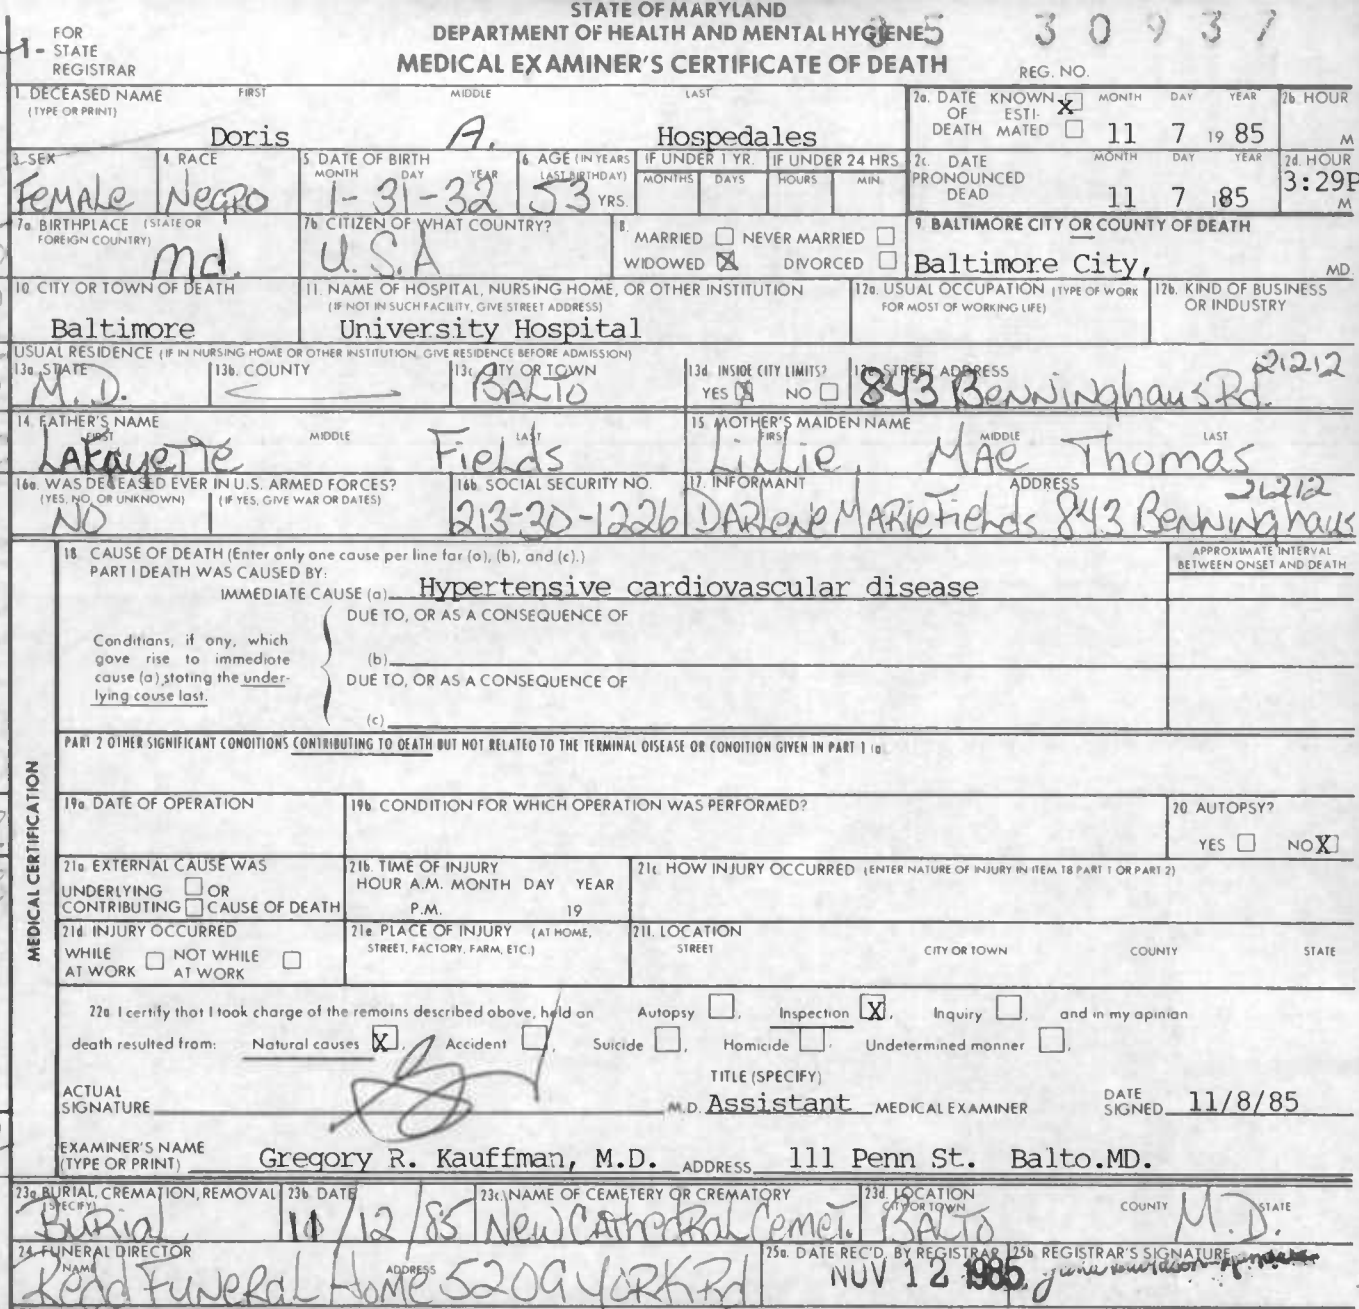 STATE OF MARYLAND
DEPARTMENT OF HEALTH AND MENTAL HYGIENE
85 30937
MEDICAL EXAMINER'S CERTIFICATE OF DEATH
REG. NO.
1- FOR STATE REGISTRAR
1. DECEASED NAME (TYPE OR PRINT) FIRST MIDDLE LAST
Doris A. Hospedales
2a. DATE OF DEATH KNOWN X ESTIMATED MONTH DAY YEAR 11 7 19 85
2b. HOUR M
3. SEX Female
4. RACE Negro
5. DATE OF BIRTH MONTH DAY YEAR 1-31-32
6. AGE (IN YEARS LAST BIRTHDAY) 53 YRS.
IF UNDER 1 YR. MONTHS DAYS
IF UNDER 24 HRS HOURS MIN.
2c. DATE PRONOUNCED DEAD MONTH DAY YEAR 11 7 1985
2d. HOUR 3:29P M
7a. BIRTHPLACE (STATE OR FOREIGN COUNTRY) Md.
7b. CITIZEN OF WHAT COUNTRY? U.S.A
8. MARRIED NEVER MARRIED
WIDOWED X DIVORCED
9. BALTIMORE CITY OR COUNTY OF DEATH
Baltimore City, MD.
10. CITY OR TOWN OF DEATH
Baltimore
11. NAME OF HOSPITAL, NURSING HOME, OR OTHER INSTITUTION
(IF NOT IN SUCH FACILITY, GIVE STREET ADDRESS)
University Hospital
12a. USUAL OCCUPATION (TYPE OF WORK FOR MOST OF WORKING LIFE)
12b. KIND OF BUSINESS OR INDUSTRY
USUAL RESIDENCE (IF IN NURSING HOME OR OTHER INSTITUTION, GIVE RESIDENCE BEFORE ADMISSION)
13a. STATE M.D.
13b. COUNTY
13c. CITY OR TOWN BALTO
13d. INSIDE CITY LIMITS? YES X NO
13e. STREET ADDRESS 21212
843 Benninghaus Rd.
14. FATHER'S NAME FIRST MIDDLE LAST
Lafayette Fields
15. MOTHER'S MAIDEN NAME FIRST MIDDLE LAST
Lillie, Mae Thomas
16a. WAS DECEASED EVER IN U.S. ARMED FORCES?
(YES, NO, OR UNKNOWN) (IF YES, GIVE WAR OR DATES)
NO
16b. SOCIAL SECURITY NO.
213-30-1226
17. INFORMANT ADDRESS 21212
Darlene Marie Fields 843 Benninghaus
MEDICAL CERTIFICATION
18. CAUSE OF DEATH (Enter only one cause per line for (a), (b), and (c).)
APPROXIMATE INTERVAL BETWEEN ONSET AND DEATH
PART I DEATH WAS CAUSED BY:
IMMEDIATE CAUSE (a) Hypertensive cardiovascular disease
DUE TO, OR AS A CONSEQUENCE OF
Conditions, if any, which gave rise to immediate cause (a), stating the underlying cause last.
(b)
DUE TO, OR AS A CONSEQUENCE OF
(c)
PART 2 OTHER SIGNIFICANT CONDITIONS CONTRIBUTING TO DEATH BUT NOT RELATED TO THE TERMINAL DISEASE OR CONDITION GIVEN IN PART 1 (a)
19a. DATE OF OPERATION
19b. CONDITION FOR WHICH OPERATION WAS PERFORMED?
20. AUTOPSY?
YES NO X
21a. EXTERNAL CAUSE WAS
UNDERLYING OR
CONTRIBUTING CAUSE OF DEATH
21b. TIME OF INJURY
HOUR A.M. MONTH DAY YEAR
P.M. 19
21c. HOW INJURY OCCURRED (ENTER NATURE OF INJURY IN ITEM 18 PART 1 OR PART 2)
21d. INJURY OCCURRED
WHILE AT WORK NOT WHILE AT WORK
21e. PLACE OF INJURY (AT HOME, STREET, FACTORY, FARM, ETC.)
21f. LOCATION
STREET CITY OR TOWN COUNTY STATE
22a. I certify that I took charge of the remains described above, held an Autopsy, Inspection X, Inquiry, and in my opinion
death resulted from: Natural causes X, Accident, Suicide, Homicide, Undetermined manner.
ACTUAL SIGNATURE M.D.
TITLE (SPECIFY)
Assistant MEDICAL EXAMINER
DATE SIGNED 11/8/85
EXAMINER'S NAME (TYPE OR PRINT) Gregory R. Kauffman, M.D. ADDRESS 111 Penn St. Balto.MD.
23a. BURIAL, CREMATION, REMOVAL (SPECIFY) Burial
23b. DATE 11/12/85
23c. NAME OF CEMETERY OR CREMATORY New Cathedral Cemet.
23d. LOCATION CITY OR TOWN COUNTY STATE
BALTO M.D.
24. FUNERAL DIRECTOR NAME ADDRESS
Redd Funeral Home 5209 York Rd
25a. DATE REC'D. BY REGISTRAR
NOV 12 1985
25b. REGISTRAR'S SIGNATURE